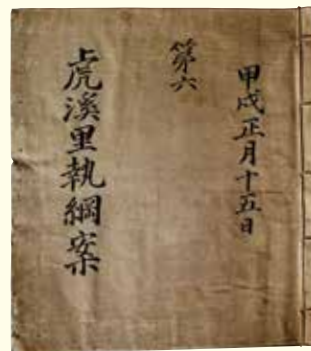 甲戌正月十五日
第六
虎溪里執綱案